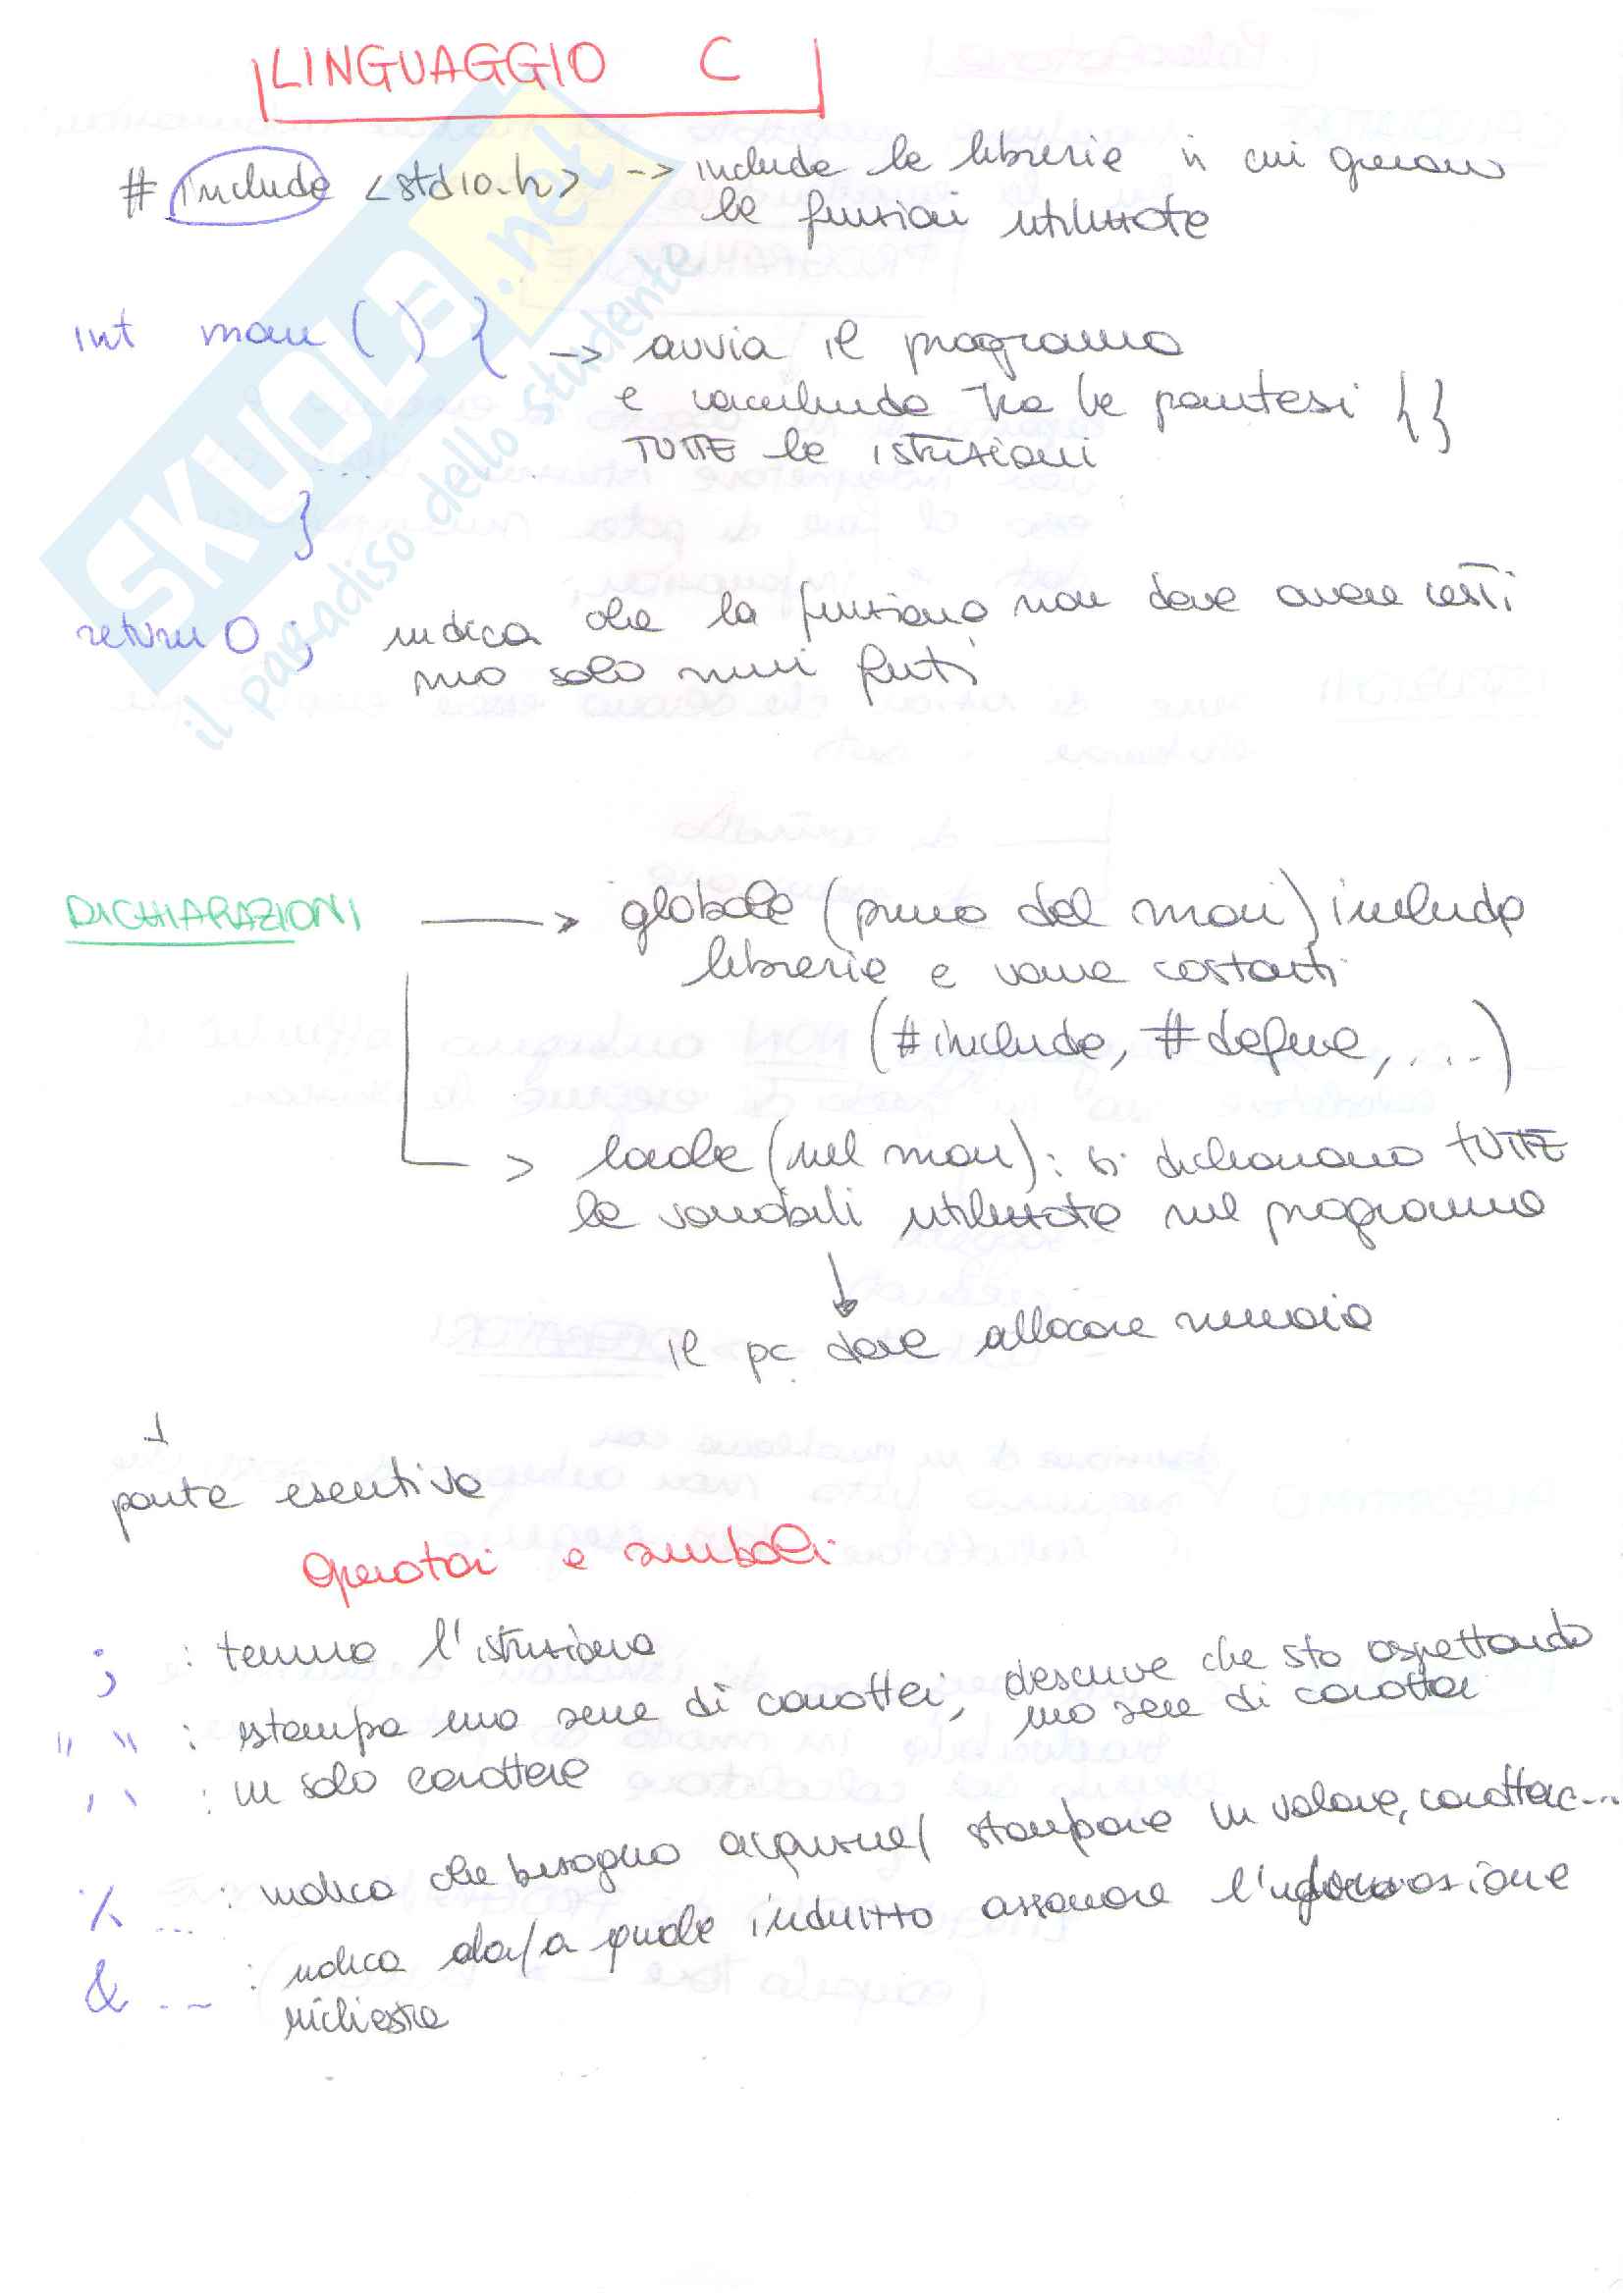 LINGUAGGIO C
# include <stdio.h> -> include le librerie in cui
le funzioni utilizzate
int main () { -> avvia il programma
e racchiude tra le parentesi { }
TUTTE le istruzioni
}
return 0 ; indica che la funzione non deve avere resti
ma solo
DICHIARAZIONI -> globale (prima del main) include
librerie e varie costanti
(#include, #define, ...)
-> locale (nel main): si dichiarano TUTTE
le variabili utilizzate nel programma
↓
il pc deve allocare memoria
parte esecutiva
Operatori e simboli
; : termina l'istruzione
" " : stampa una serie di caratteri, descrive che sto aspettando
una serie di caratteri
' ' : un solo carattere
% ... : indica che bisogna acquisire/ stampare un valore, carattere...
& ... : indica da/a quale indirizzo associare l'informazione
richiesta
SKUOLA.net
il paradiso dello studente